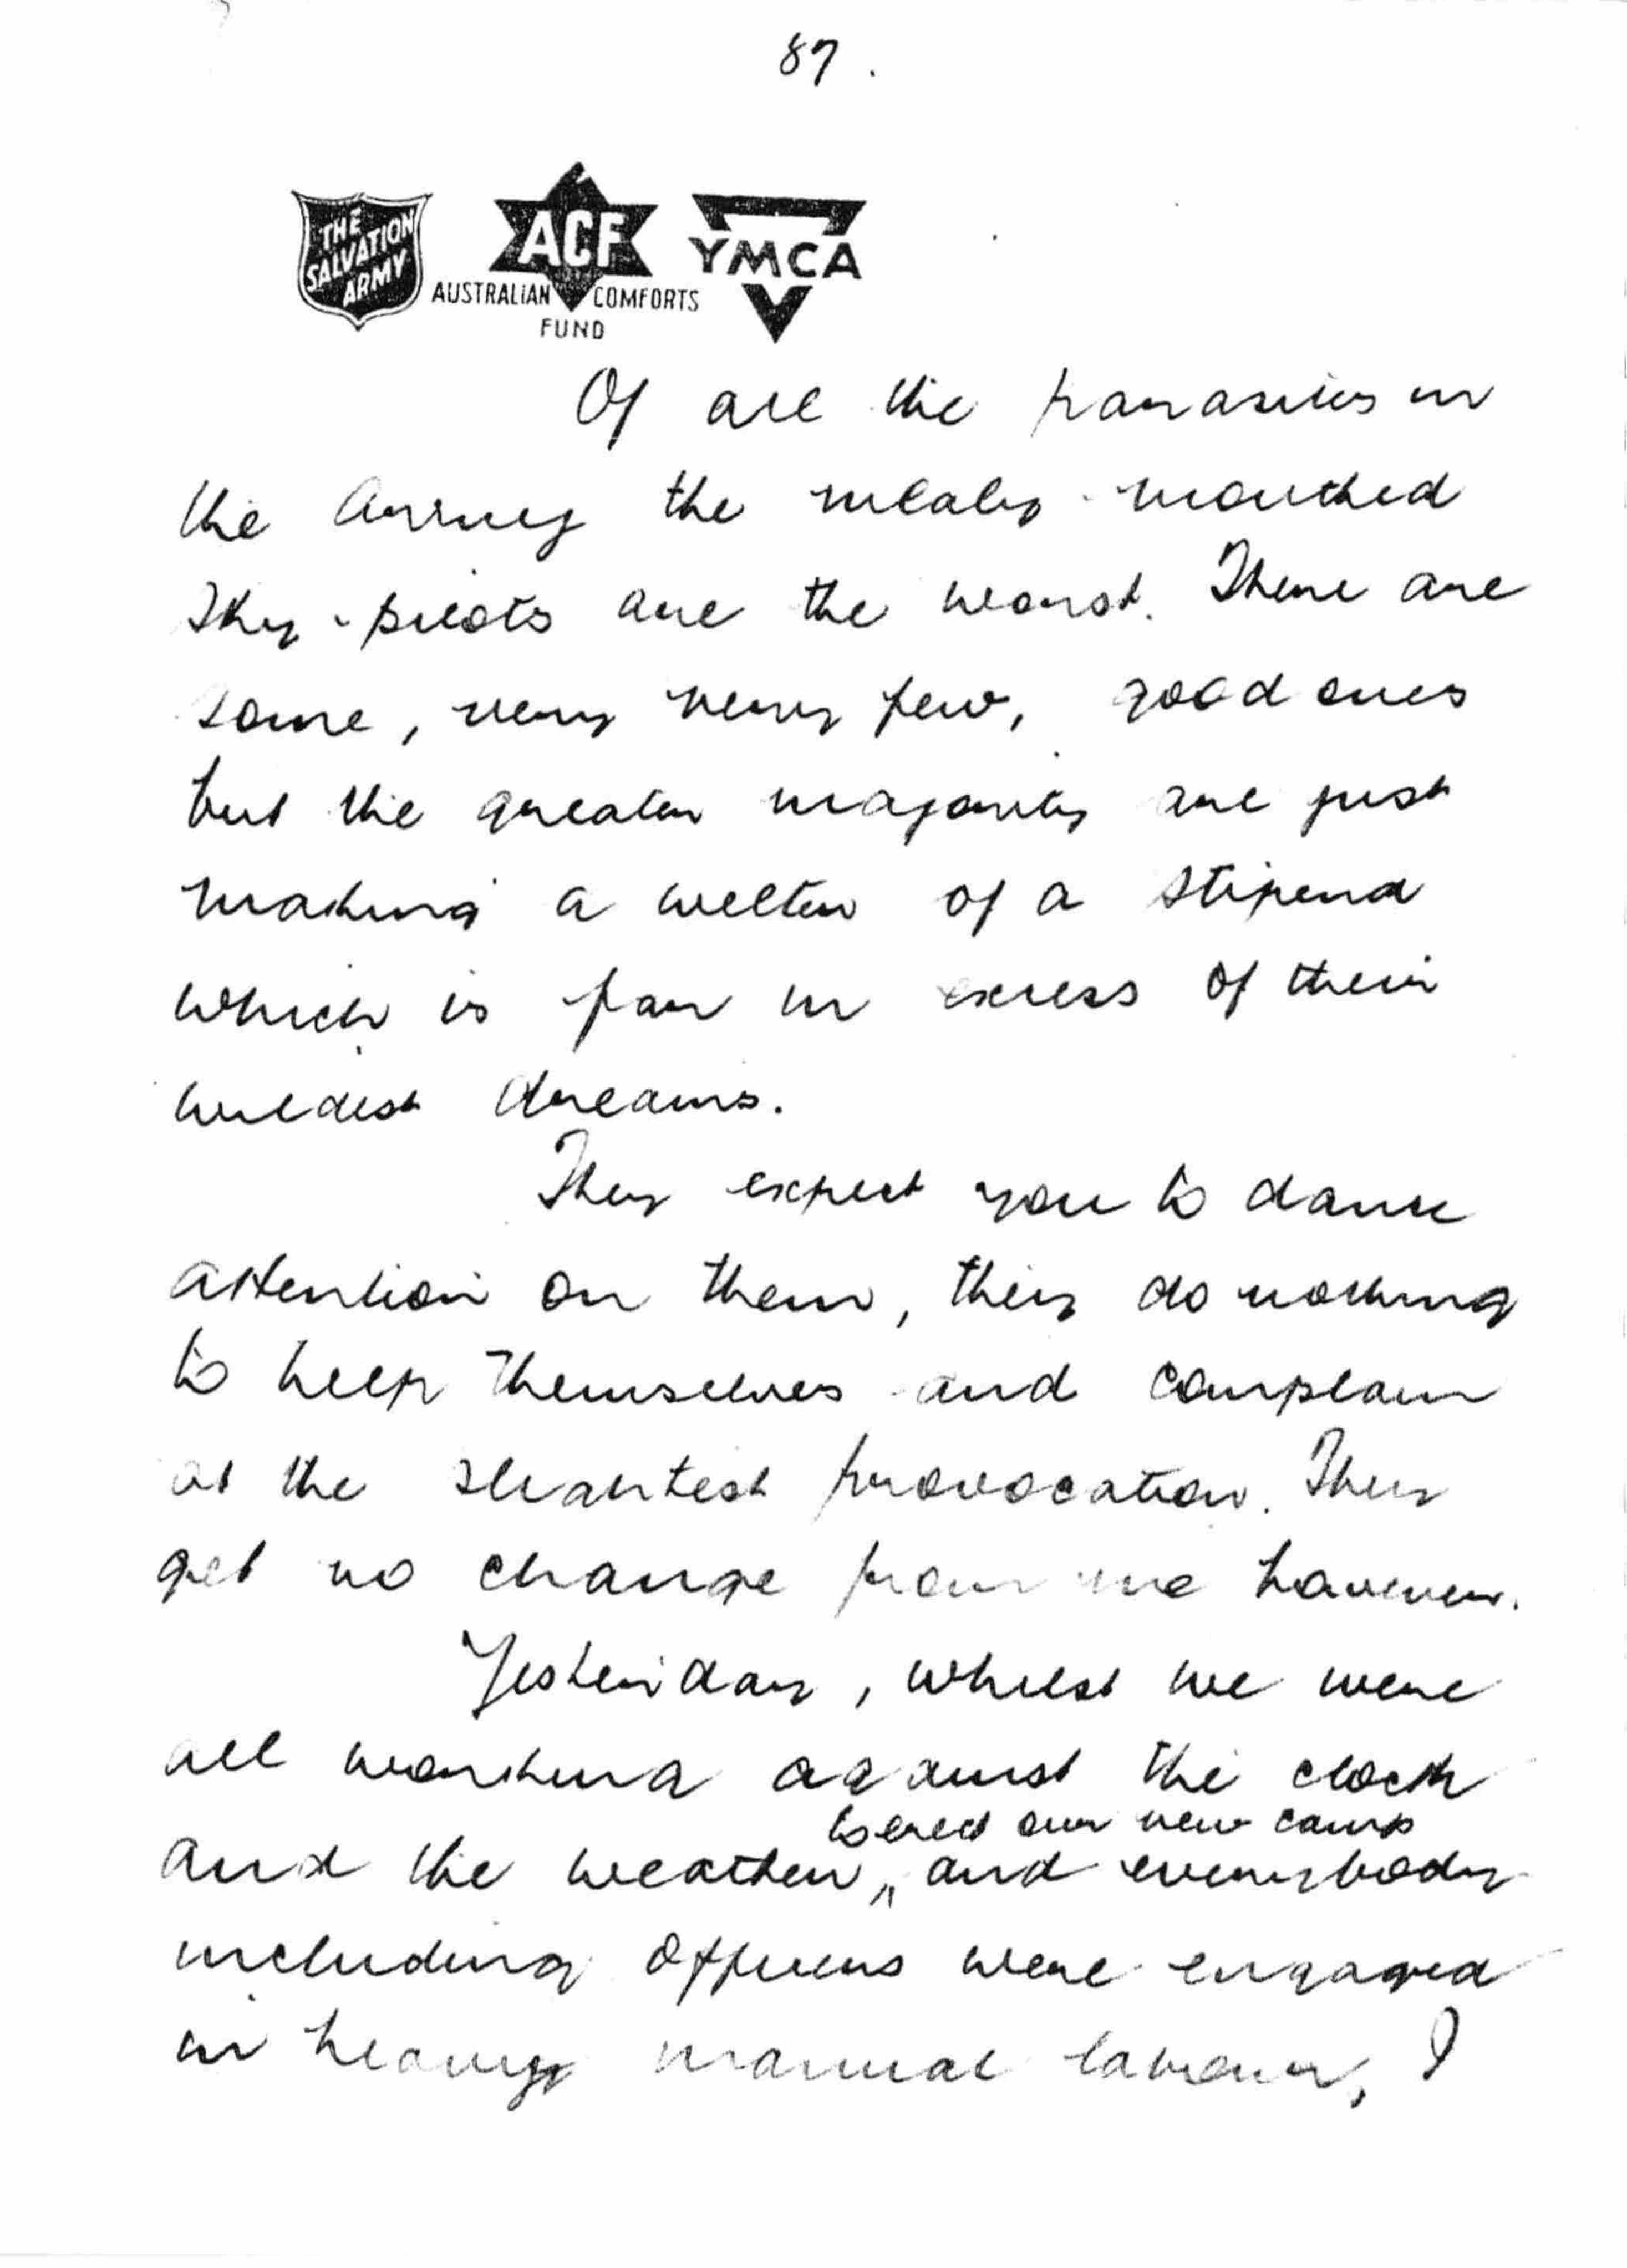 87.
THE SALVATION ARMY
ACF
AUSTRALIAN COMFORTS FUND
YMCA
Of all the parasites in
the Army the mealy-mouthed
Sky-pilots are the worst. There are
some, very very few, good ones
but the greater majority are just
making a welter of a stipend
which is far in excess of their
wildest dreams.
They expect you to dance
attention on them, they do nothing
to help themselves and complain
at the slightest provocation. They
get no change from me however.
Yesterday, whilst we were
all working against the clock
to erect our new camp
and the weather, and everybody
including officers were engaged
in heavy manual labour, I